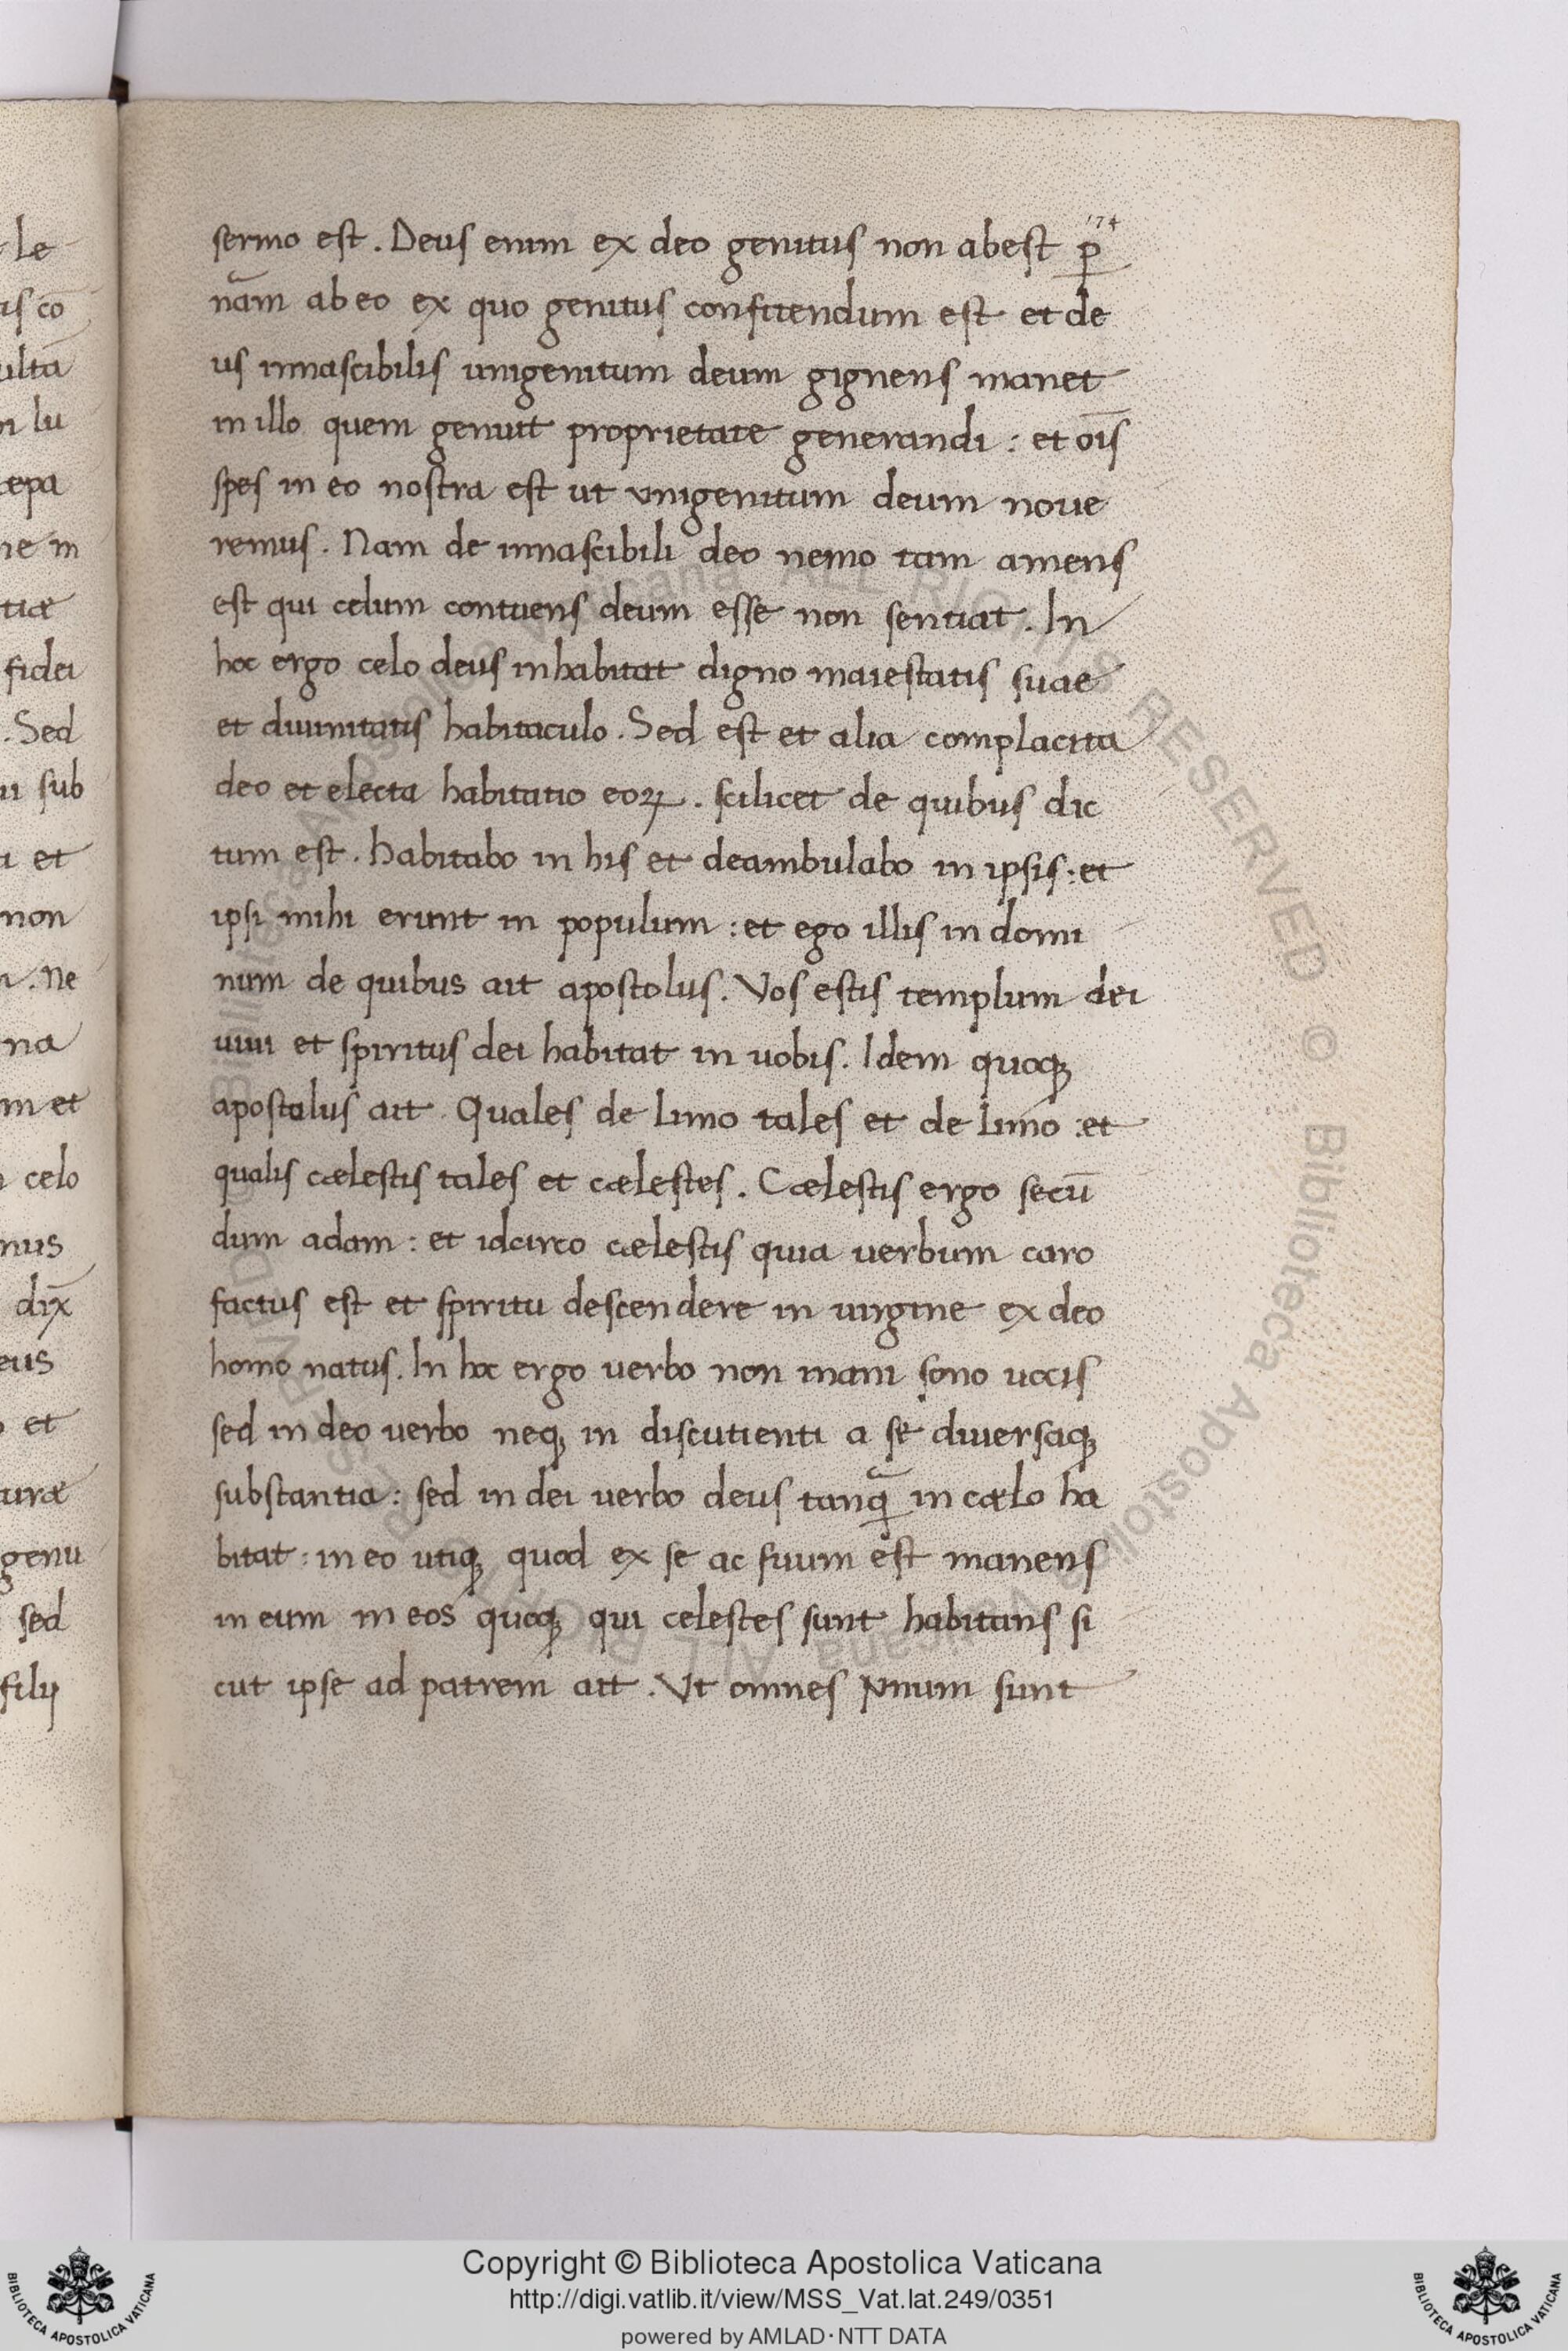 174
sermo est. Deus enim ex deo genitus non abest p̱
nām ab eo ex quo genitus confitendum est et de
us innascibilis unigenitum deum gignens manet
in illo quem genuit proprietate generandi : et oīs
spes in eo nostra est ut vnigenitum deum noue
remus. Nam de innascibili deo nemo tam amens
est qui celum contuens deum esse non sentiat. In
hoc ergo celo deus inhabitat digno maiestatis suae
et diuinitatis habitaculo. Sed est et alia complacita
deo et electa habitatio eoꝝ. scilicet de quibus dic
tum est. habitabo in his et deambulabo in ipsis: et
ipsi mihi erunt in populum : et ego illis in domi
num de quibus ait apostolus. Vos estis templum dei
uiui et spiritus dei habitat in uobis. Idem quoqꝫ
apostolus ait. Quales de limo tales et de limo : et
qualis cælestis tales et cælestes. Cælestis ergo secū
dum adam : et idcirco cælestis quia uerbum caro
factus est et spiritu descendere in uirgine ex deo
homo natus. In hoc ergo uerbo non mani sono uocis
sed in deo uerbo neqꝫ in discutienti a se diuersaqꝫ
substantia : sed in dei uerbo deus tanq̄ in cælo ha
bitat : in eo utiqꝫ quod ex se ac suum est manens
in eum in eos quoqꝫ qui celestes sunt habitans si
cut ipse ad patrem ait. Vt omnes vnum sunt
le
is cō
ultā
lu
cepa
ne in
tiæ
fidei
. Sed
ii sub
i et
non
. Ne
na
m et
celo
nus
dix̄
eus
et
uræ
genu
sed
filij
Biblioteca Apostolica Vaticana ALL RIGHTS RESERVED © Biblioteca Apostolica Vaticana ALL RIGHTS RESERVED ©
Copyright © Biblioteca Apostolica Vaticana
http://digi.vatlib.it/view/MSS_Vat.lat.249/0351
powered by AMLAD·NTT DATA
BIBLIOTECA APOSTOLICA VATICANA
BIBLIOTECA APOSTOLICA VATICANA